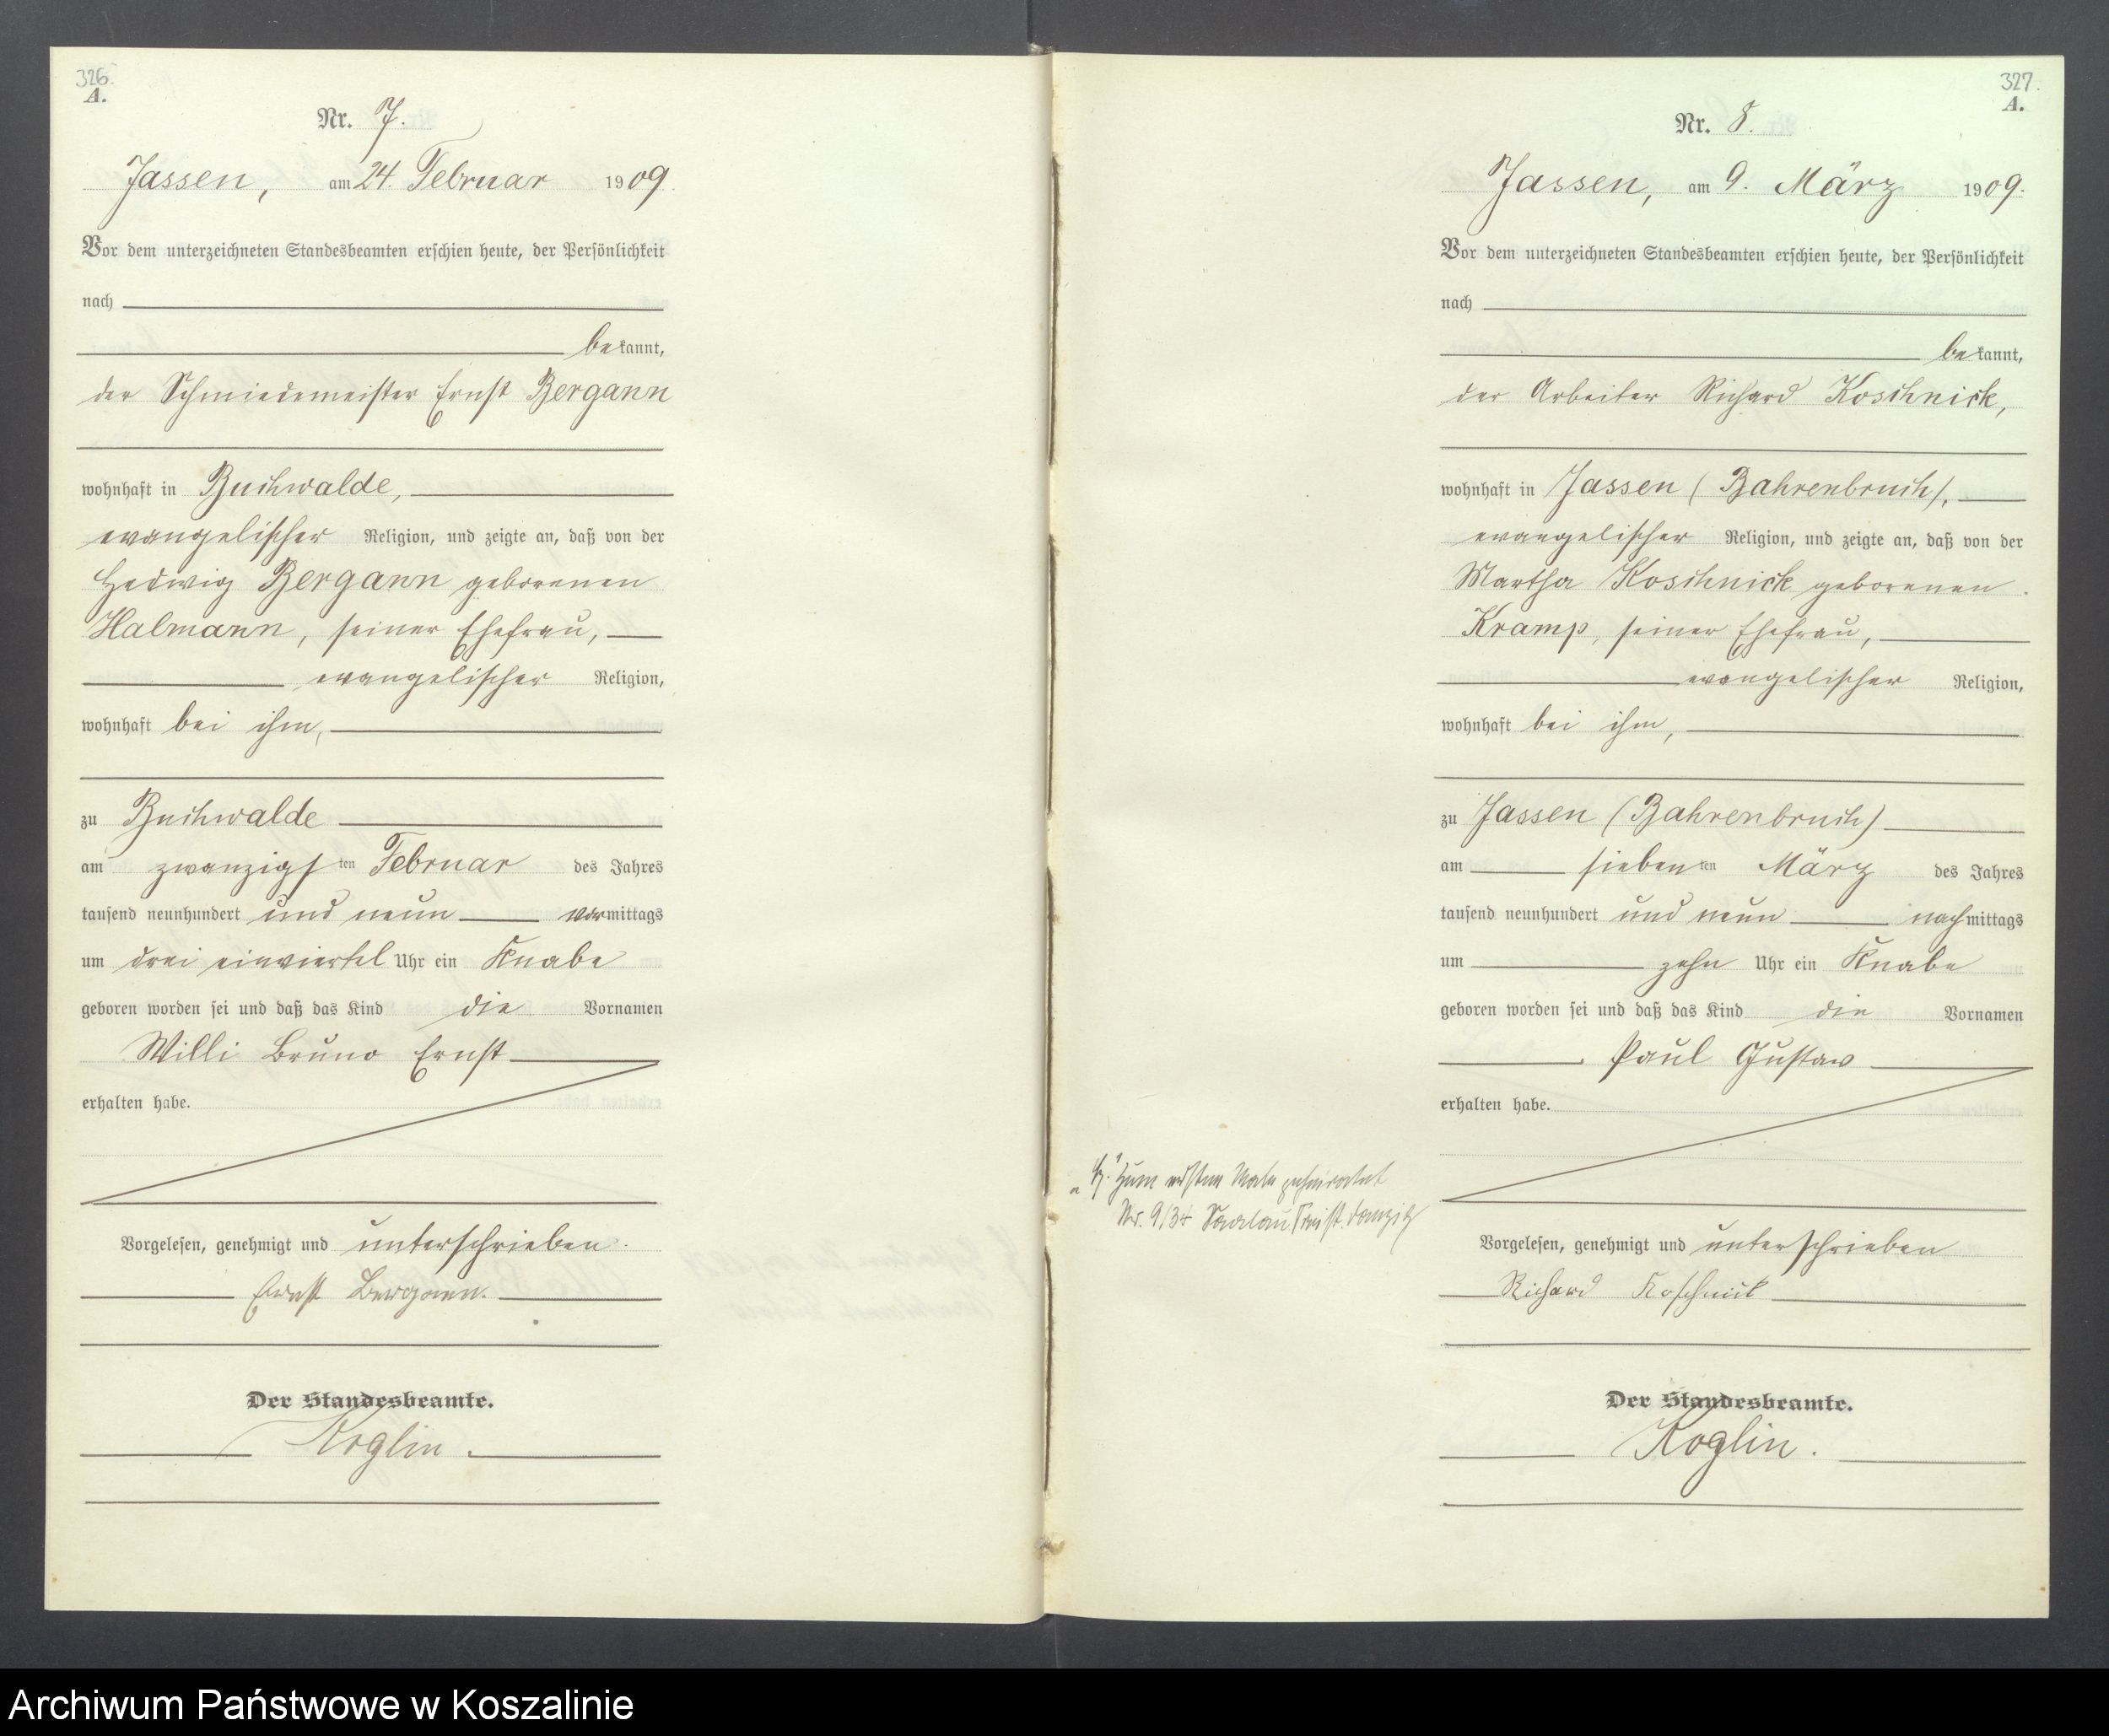 326.
A.
Nr. 7.
Jassen, am 24. Februar 1909.
Vor dem unterzeichneten Standesbeamten erschien heute, der Persönlichkeit
nach
bekannt,
der Schmiedemeister Ernst Bergann
wohnhaft in Buchwalde,
evangelischer Religion, und zeigte an, daß von der
Hedwig Bergann geborenen
Halmann, seiner Ehefrau,
evangelischer Religion,
wohnhaft bei ihm,
zu Buchwalde
am zwanzigsten Februar des Jahres
tausend neunhundert und neun vormittags
um drei einviertel Uhr ein Knabe
geboren worden sei und daß das Kind die Vornamen
Willi Bruno Ernst
erhalten habe.
Vorgelesen, genehmigt und unterschrieben.
Ernst Bergann.
Der Standesbeamte.
Koglin.
327.
A.
Nr. 8.
Jassen, am 9. März 1909.
Vor dem unterzeichneten Standesbeamten erschien heute, der Persönlichkeit
nach
bekannt,
der Arbeiter Richard Koschnick,
wohnhaft in Jassen (Bahrenbruch),
evangelischer Religion, und zeigte an, daß von der
Martha Koschnick geborenen
Kramp, seiner Ehefrau,
evangelischer Religion,
wohnhaft bei ihm,
zu Jassen (Bahrenbruch)
am siebenten März des Jahres
tausend neunhundert und neun nachmittags
um zehn Uhr ein Knabe
geboren worden sei und daß das Kind die Vornamen
Paul Gustav
erhalten habe.
zum ersten Male geheiratet
Nr. 9/34 Danzig
Vorgelesen, genehmigt und unterschrieben
Richard Koschnick
Der Standesbeamte.
Koglin.
Archiwum Państwowe w Koszalinie